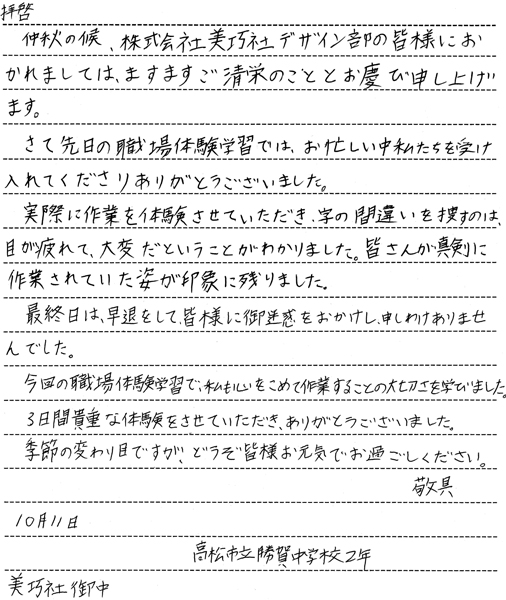 拝啓
仲秋の候、株式会社美巧社デザイン部の皆様にお
かれましては、ますますご清栄のこととお慶び申し上げ
ます。
さて先日の職場体験学習では、お忙しい中私たちを受け
入れてくださりありがとうございました。
実際に作業を体験させていただき、字の間違いを捜すのは、
目が疲れて、大変だということがわかりました。皆さんが真剣に
作業されていた姿が印象に残りました。
最終日は、早退をして、皆様に御迷惑をおかけし、申しわけありませ
んでした。
今回の職場体験学習で、私も心をこめて作業することの大切さを学びました。
3日間貴重な体験をさせていただき、ありがとうございました。
季節の変わり目ですが、どうぞ皆様お元気でお過ごしください。
敬具
10月11日
高松市立勝賀中学校2年
美巧社御中